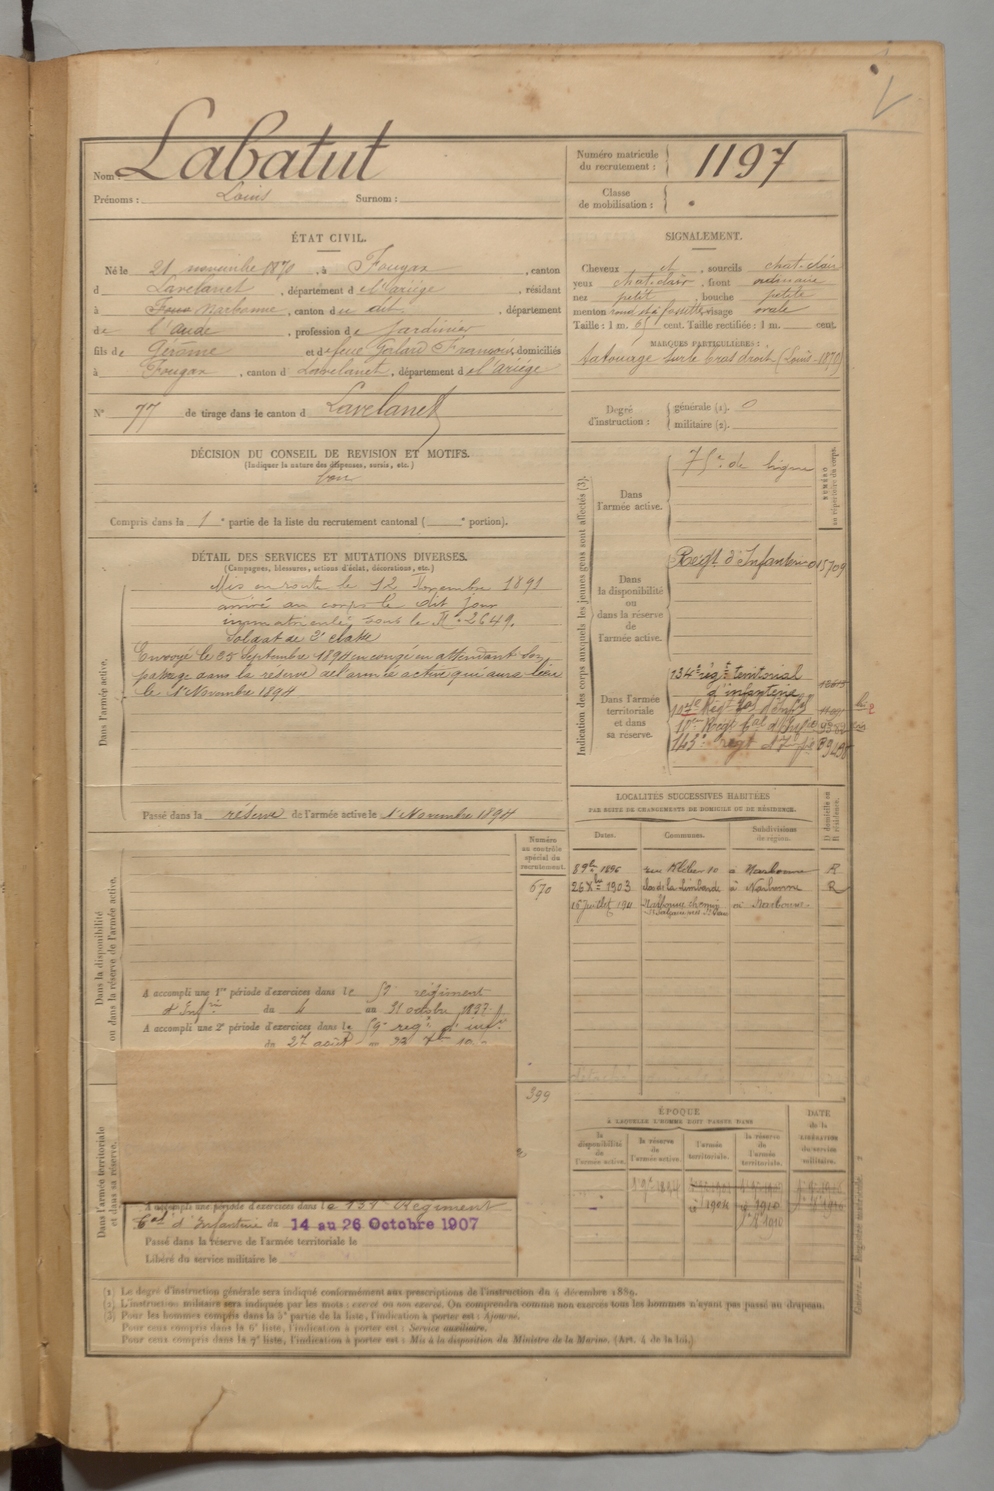 Nom : Labatut
Prénoms : Louis Surnom :
Numéro matricule du recrutement : 1197
Classe de mobilisation :
ÉTAT CIVIL.
Né le 21 novembre 1870, à Fougax, canton
d Lavelanet, département d e l'ariège, résidant
à Narbonne, canton d u dit, département
de l'aude, profession de Jardinier
fils de Gérôme et de feue Galard Françoise, domiciliés
à Fougax, canton d Lavelanet, département d e l'ariège
N° 77 de tirage dans le canton d Lavelanet
SIGNALEMENT.
Cheveux et, sourcils chat-clair
yeux chat-clair, front ordinaire
nez petit, bouche petite
menton rond et à fossette, visage ovale
Taille : 1 m. 65 cent. Taille rectifiée : 1 m. cent.
MARQUES PARTICULIÈRES :
tatouage sur le bras droit (Louis 1870)
Degré d'instruction :
générale (1). 0
militaire (2).
DÉCISION DU CONSEIL DE REVISION ET MOTIFS.
(Indiquer la nature des dispenses, sursis, etc.)
bon
Compris dans la 1e partie de la liste du recrutement cantonal ( e portion).
DÉTAIL DES SERVICES ET MUTATIONS DIVERSES.
(Campagnes, blessures, actions d'éclat, décorations, etc.)
Dans l'armée active.
Mis en route le 12 Novembre 1891
arrivé au corps le dit jour
immatriculé sous le N° 2649.
Soldat de 2e classe
Envoyé le 25 Septembre 1894 en congé en attendant son
passage dans la réserve de l'armée active qui aura lieu
le 1er Novembre 1894
Passé dans la réserve de l'armée active le 1er Novembre 1894
Indication des corps auxquels les jeunes gens sont affectés (3).
NUMÉRO au répertoire du corps.
Dans l'armée active.
75e de ligne
Dans la disponibilité ou dans la réserve de l'armée active.
Régt d'Infanterie 015709
Dans l'armée territoriale et dans sa réserve.
134e régt territorial
d'infanterie
143e regt
LOCALITÉS SUCCESSIVES HABITÉES
PAR SUITE DE CHANGEMENTS DE DOMICILE OU DE RÉSIDENCE.
Dates. Communes. Subdivisions de région. D domicile ou R résidence.
8 9bre 1896 10 à Narbonne R
26 Xbre 1903 clos de la Limbarde à Narbonne R
15 juillet 1911 Narbonne chemin Narbonne
Numéro au contrôle spécial du recrutement.
670
399
Dans la disponibilité ou dans la réserve de l'armée active.
A accompli une 1re période d'exercices dans le régiment
d'Infrie du 4 au 31 octobre 1897
A accompli une 2e période d'exercices dans le regt d'inf
du 27 août au
Dans l'armée territoriale et dans sa réserve.
A accompli une période d'exercices dans le 134e Régiment
Teal d'Infanterie du 14 au 26 Octobre 1907
Passé dans la réserve de l'armée territoriale le
Libéré du service militaire le
ÉPOQUE
À LAQUELLE L'HOMME DOIT PASSER DANS
la disponibilité de l'armée active. la réserve de l'armée active. l'armée territoriale. la réserve de l'armée territoriale.
DATE de la LIBÉRATION du service militaire.
1904 1910
(1) Le degré d'instruction générale sera indiqué conformément aux prescriptions de l'instruction du 4 décembre 1889.
(2) L'instruction militaire sera indiquée par les mots : exercé ou non exercé. On comprendra comme non exercés tous les hommes n'ayant pas passé au drapeau.
(3) Pour les hommes compris dans la 5e partie de la liste, l'indication à porter est : Ajourné.
Pour ceux compris dans la 6e liste, l'indication à porter est : Service auxiliaire.
Pour ceux compris dans la 7e liste, l'indication à porter est : Mis à la disposition du Ministre de la Marine. (Art. 4 de la loi.)